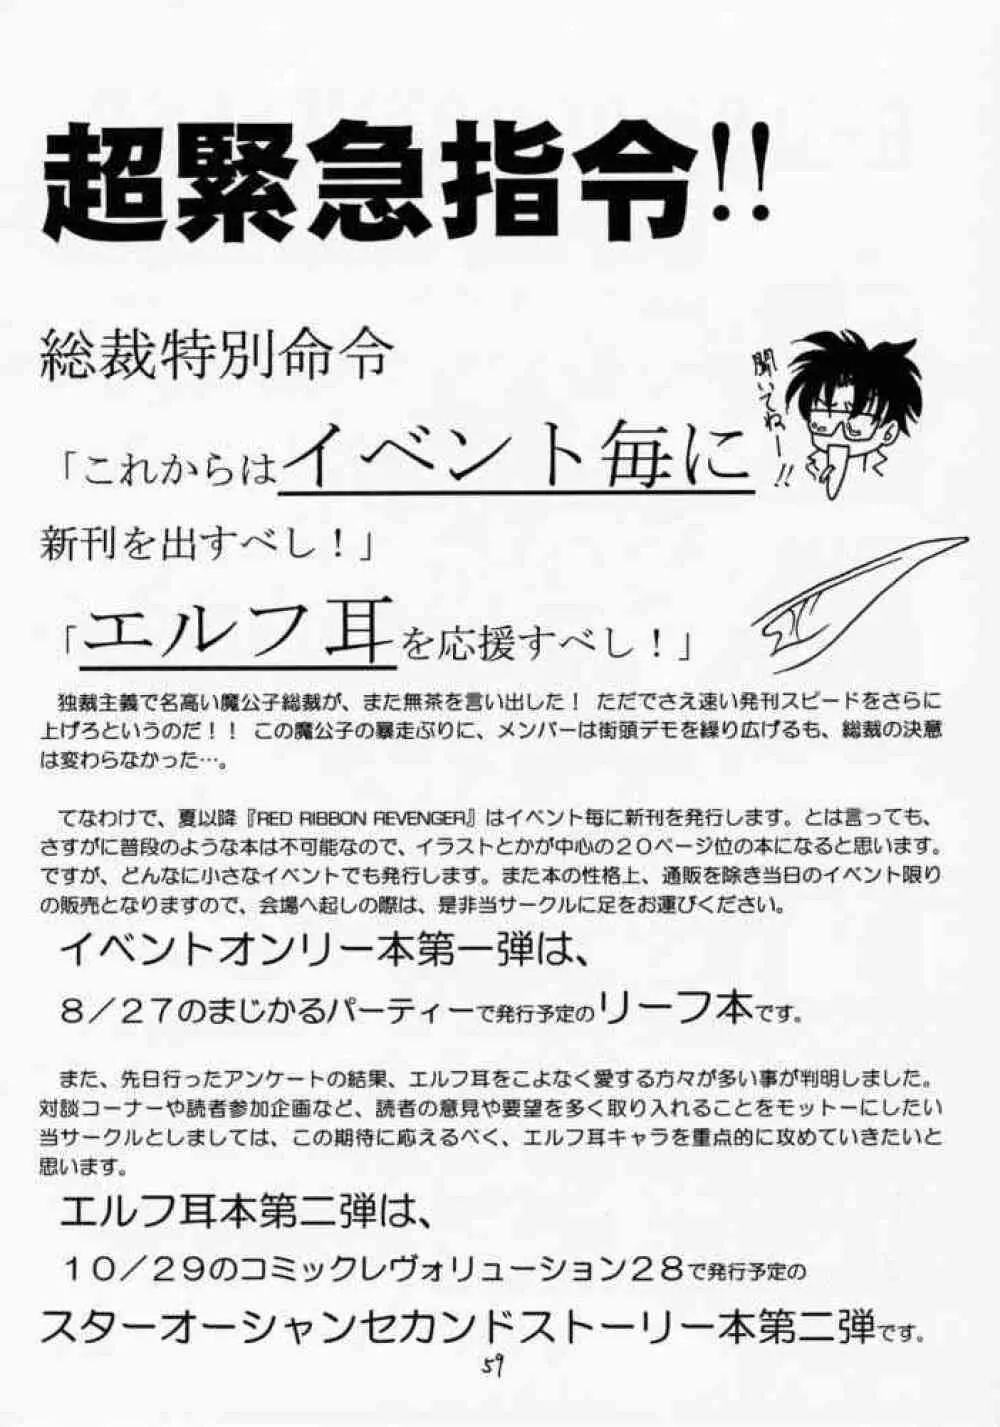 超緊急指令!!
総裁特別命令
聞いてねー!!
「これからはイベント毎に
新刊を出すべし！」
「エルフ耳を応援すべし！」
独裁主義で名高い魔公子総裁が、また無茶を言い出した！ ただでさえ速い発刊スピードをさらに
上げろというのだ！！ この魔公子の暴走ぶりに、メンバーは街頭デモを繰り広げるも、総裁の決意
は変わらなかった…。
てなわけで、夏以降『RED RIBBON REVENGER』はイベント毎に新刊を発行します。とは言っても、
さすがに普段のような本は不可能なので、イラストとかが中心の２０ページ位の本になると思います。
ですが、どんなに小さなイベントでも発行します。また本の性格上、通販を除き当日のイベント限り
の販売となりますので、会場へ起しの際は、是非当サークルに足をお運びください。
イベントオンリー本第一弾は、
８／２７のまじかるパーティーで発行予定のリーフ本です。
また、先日行ったアンケートの結果、エルフ耳をこよなく愛する方々が多い事が判明しました。
対談コーナーや読者参加企画など、読者の意見や要望を多く取り入れることをモットーにしたい
当サークルとしましては、この期待に応えるべく、エルフ耳キャラを重点的に攻めていきたいと
思います。
エルフ耳本第二弾は、
１０／２９のコミックレヴォリューション２８で発行予定の
スターオーシャンセカンドストーリー本第二弾です。
59